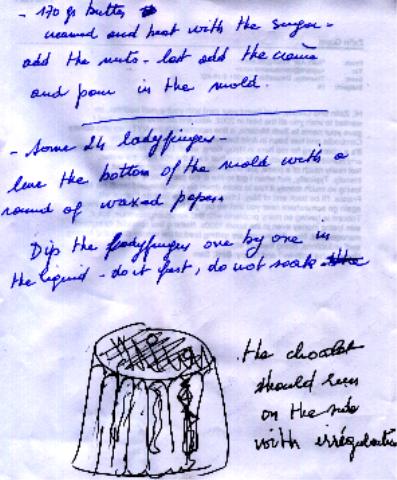 - 170 gr butter
creamed and beat with the sugar -
add the nuts - last add the crème
and pour in the mold.
- Some 24 ladyfingers -
line the bottom of the mold with a
round of waxed paper.
Dip the ladyfingers one by one in
the liquid - do it fast, do not soak
the chocolat
should run
on the side
with irrégularities